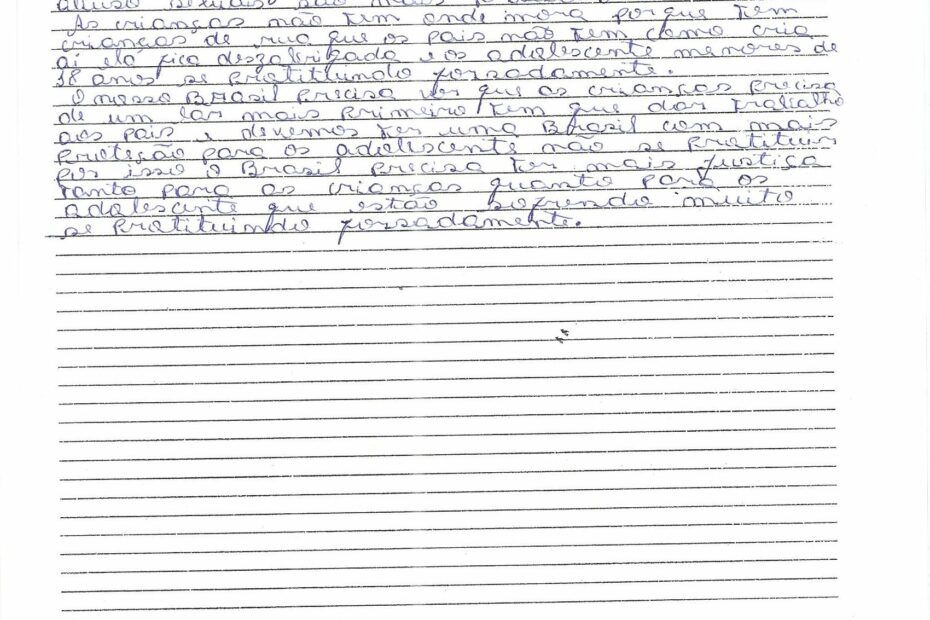 abuso sexuais são mais
As crianças não tem onde mora porque tem
crianças de rua que os pais não tem como cria
ai ela fica desabribada e os adolescente menores de
18 anos se protitiundo forsadamente.
O nosso Brasil precisa ver que as crianças precisa
de um lar mais primeiro tem que dar trabalho
aos pais e devemos ter uma Brasil com mais
protesão para os adolescente não se protituir
por isso o Brasil precisa ter mais justiça
tanto para as crianças quanto para os
adolescente que estão sofrendo muito
se protituindo forsadamente.